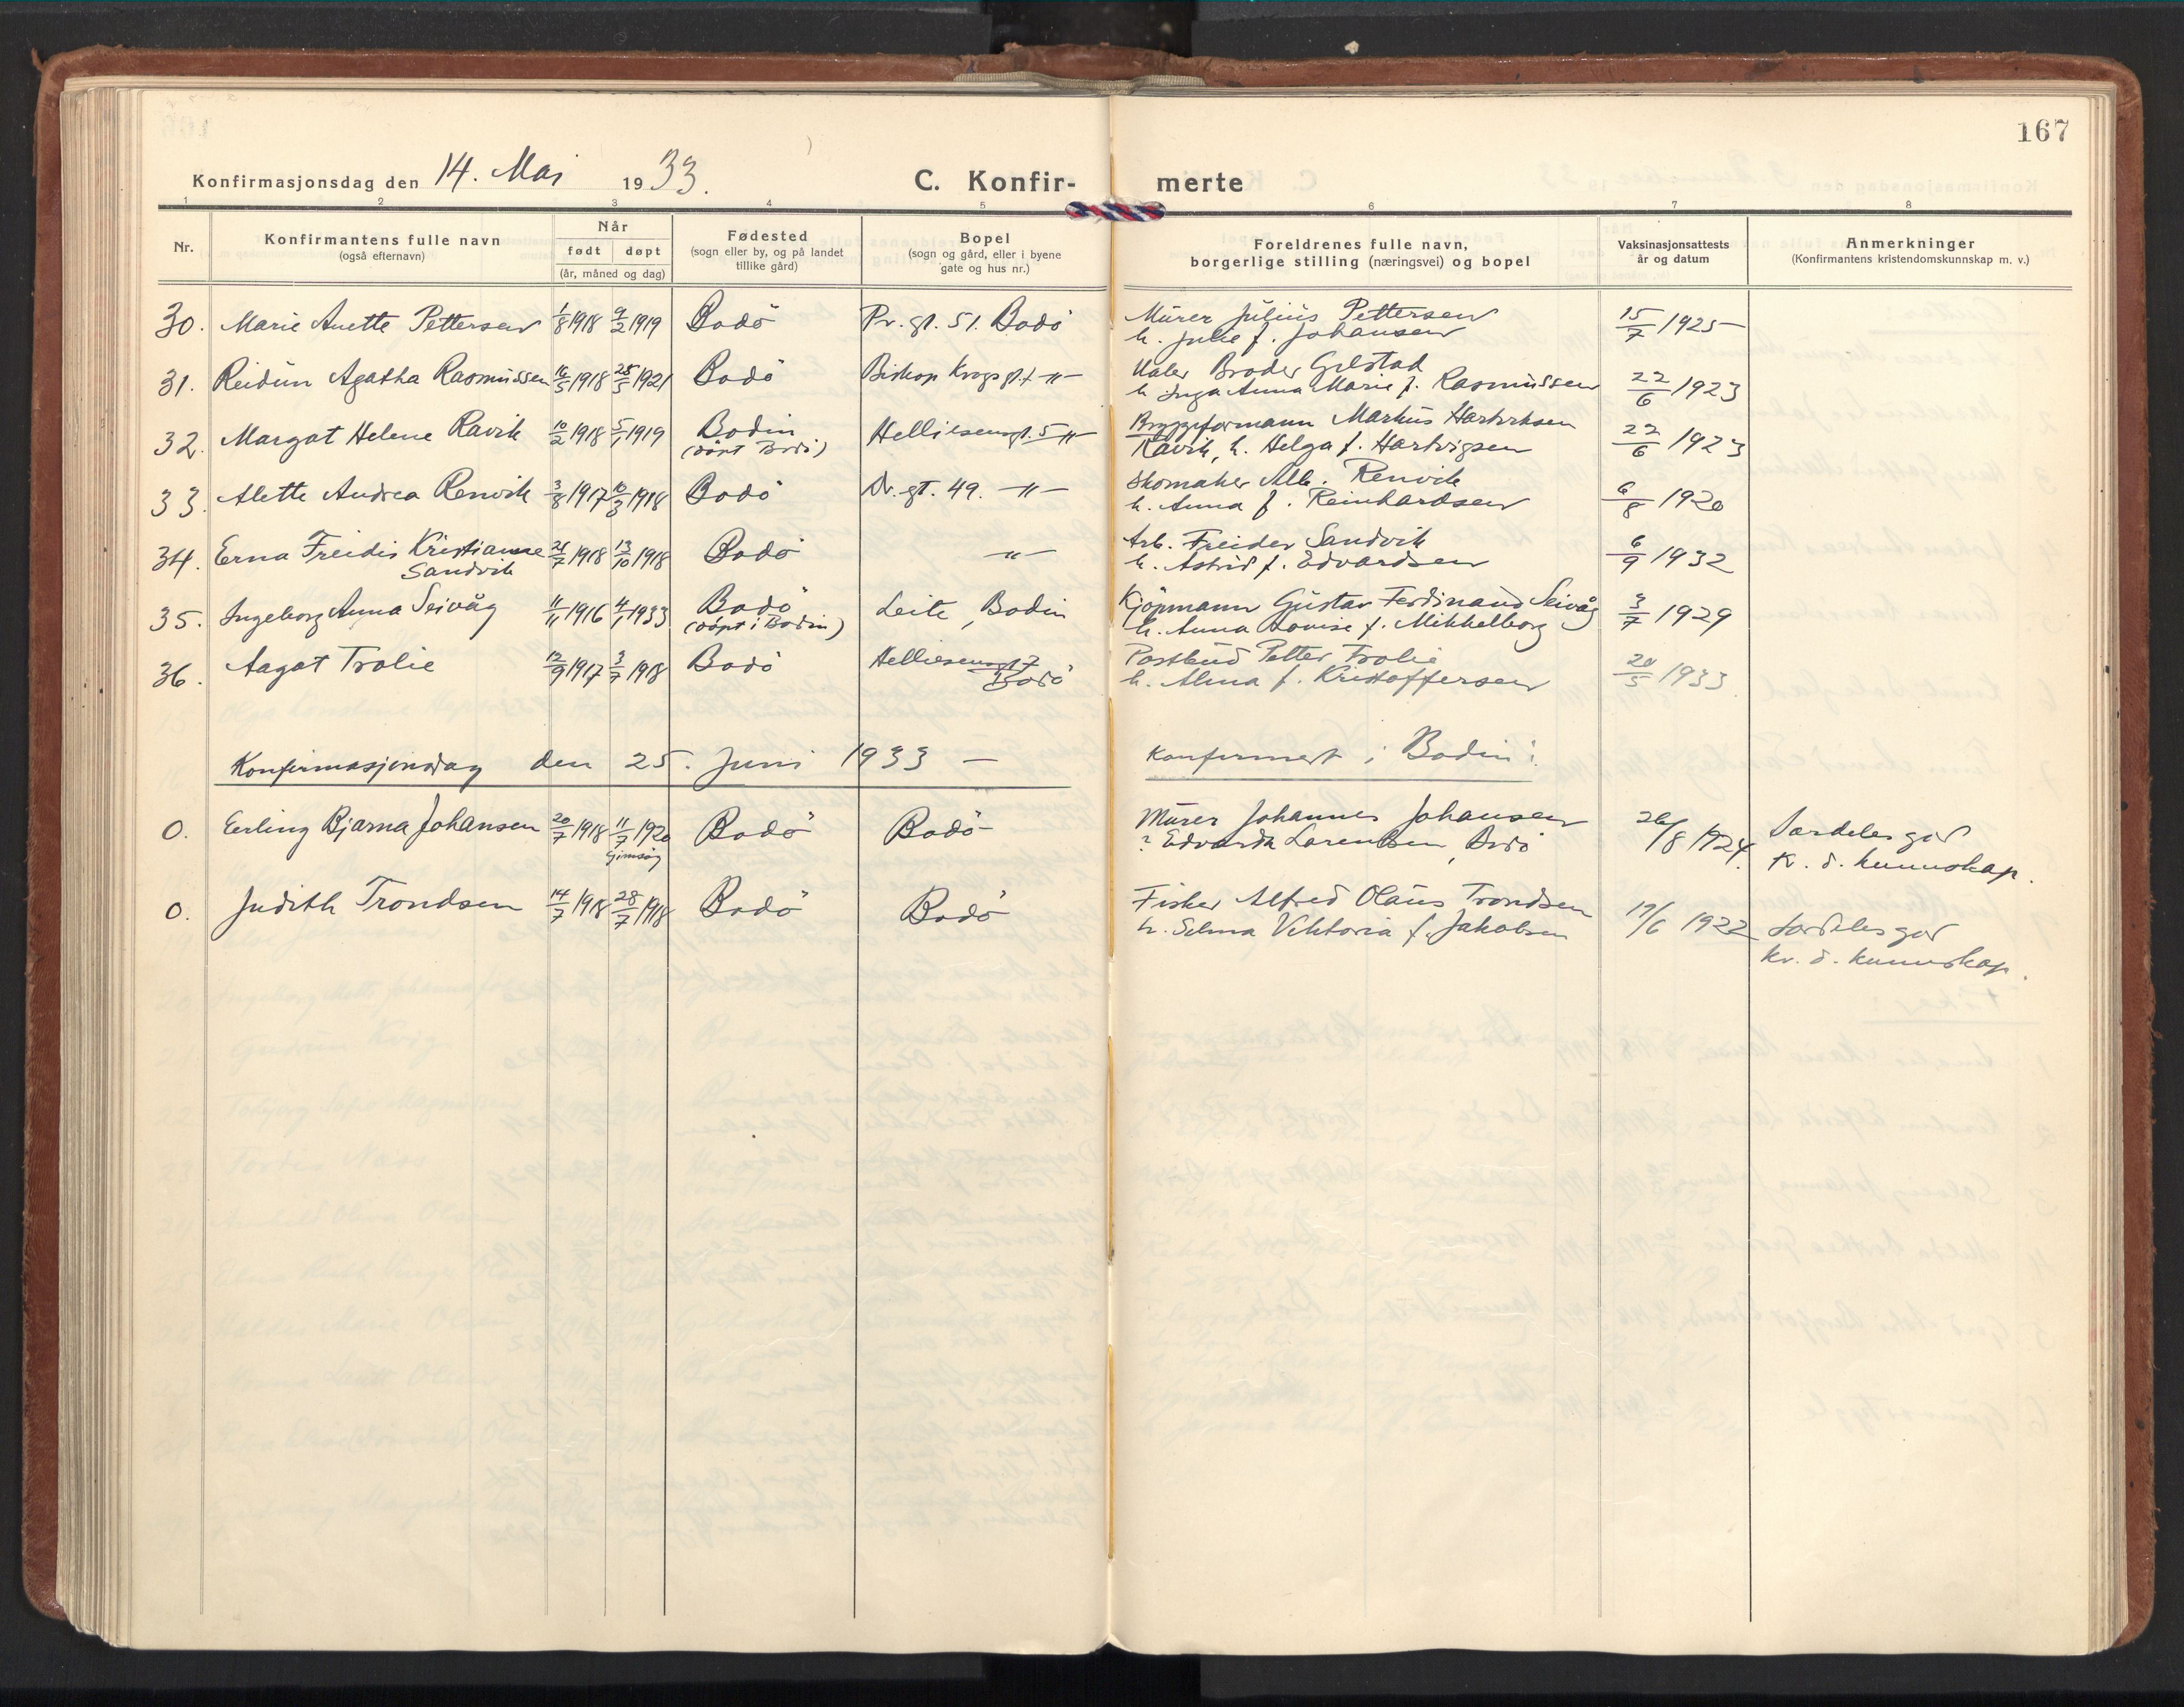 167
Konfirmasjonsdag den 14. Mai 1933.
C. Konfir- merte
1 2 3 4 5 6 7 8
Nr.
Konfirmantens fulle navn
(også efternavn)
Når
født døpt
(år, måned og dag)
Fødested
(sogn eller by, og på landet
tillike gård)
Bopel
(sogn og gård, eller i byene
gate og hus nr.)
Foreldrenes fulle navn,
borgerlige stilling (næringsvei) og bopel
Vaksinasjonsattests
år og datum
Anmerkninger
(Konfirmantens kristendomskunnskap m. v.)
30. Marie Anette Pettersen 1/8 1918 9/2 1919 Bodö Pr. gt. 51. Bodö Mürer Julius Pettersen 15/7 1925
h. Julie f. Johansen
31. Reidun Agatha Rasmussen 16/5 1918 28/5 1921 Bodö Biskop Krogs gt. -"- Maler Broder Gelstad 22/6 1923
h. Inga Anna Marie f. Rasmussen
32. Margot Helene Ravik 10/2 1918 5/1 1919 Bodin Helliesensgt. 5 -"- Bryggeformann Markus 22/6 1923
(döpt Bodö) Ravik, h. Helga f. Hartvigsen
33. Alette Andrea Renvik 3/8 1917 10/3 1918 Bodö Dr. gt. 49. -"- Skomaker Alb. Renvik 6/8 1920
h. Anna f. Reinhardsen
34. Erna Freidis Kristianse 25/7 1918 13/10 1918 Bodö -"- Arb. Freider Sandvik 6/9 1932
Sandvik h. Astrid f. Edvardsen
35. Ingeborg Anna Seivåg 11/11 1916 4/1 1933 Bodö Leite, Bodin Kjöpmann Gustav Ferdinand Seivåg 3/7 1929
(döpt i Bodin) h. Anna Lovise f. Mikkelborg
36. Aagot Trolie 12/9 1917 3/7 1918 Bodö Helliesensgt 7 Postbud Petter Trolie 20/5 1933
Bodö h. Alma f. Kristoffersen
Konfirmasjonsdag den 25. Juni 1933 — Konfirmert i Bodin:
0. Erling Bjarna Johansen 20/7 1918 11/7 1920 Bodö Bodö Mürer Johannes Johansen 26/8 1924. Særdeles god
Gimsøy ? Edvarda Larentsen, Bodö Kr. d. kunnskap.
0. Judith Trondsen 14/7 1918 28/7 1918 Bodö Bodö Fisker Alfred Olaus Trondsen 17/6 1922 Særdeles god
h. Selma Viktoria f. Jakobsen Kr. d. kunnskap.